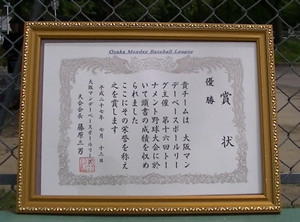 Osaka Monday Baseball League
賞状
優勝
貴チームは 大阪マン
デーベースボールリー
グ主催 第十六回トー
ナメント野球大会に於
いて頭書の成績を収め
られました
ここにその栄誉を称え
之を賞します
平成二十七年 七月 十三日
大阪マンデーベースボールリーグ
大会会長 藤原三男